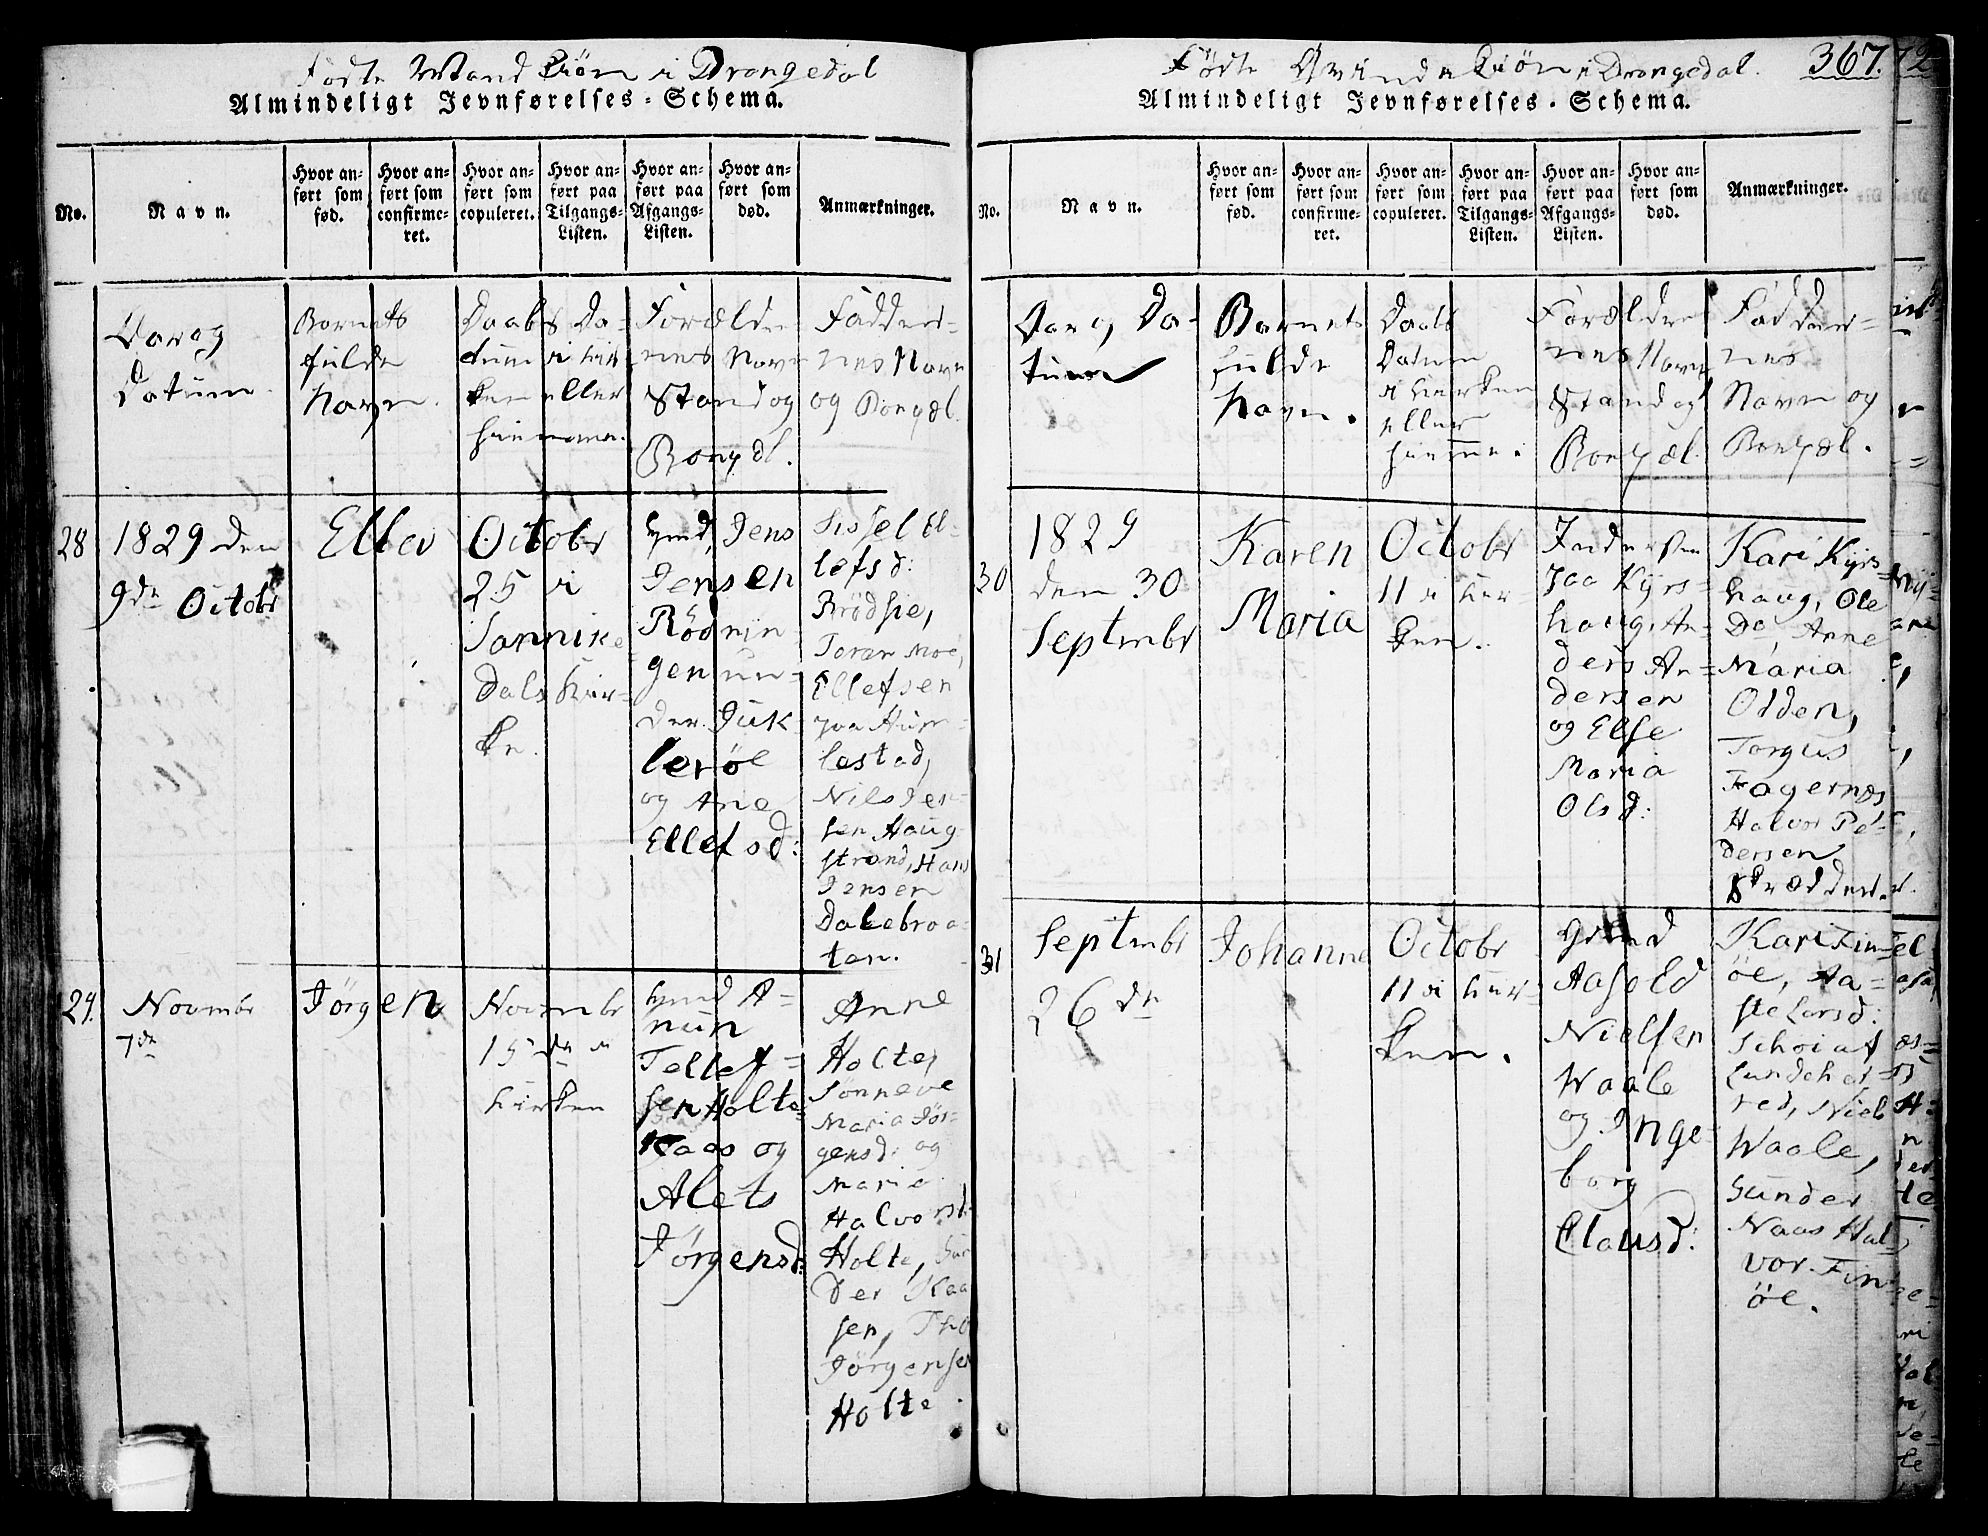 Födte Mand Kiön i Drangedal
Almindeligt Jevnførelses-Schema.
No.
Navn.
Hvor an-
ført som
fød.
Hvor an-
ført som
confirme-
ret.
Hvor an-
ført som
copuleret.
Hvor an-
ført paa
Tilgangs-
Listen.
Hvor an-
ført paa
Afgangs-
Listen.
Hvor an-
ført som
død.
Anmærkninger.
Aar og
Datum.
Barnets
fulde
Navn.
Daabs Da-
tum i kir
ken eller
hiemme.
Forældre
nes Navn
Stand og
Bopæl.
Fadder-
nes Navn
og Bopæl.
28
1829 den
9de Octobr
Ellev
Octobr
25 i
Sannike
dals Kir-
ke.
Gmd. Jens
Jensen
Rödnin
gen un-
der
leröe
og Ane
Ellefsd:
Sissel El-
lefsd:
Toran Moe,
Ellefsen
lestad,
Nils Jen-
sen Haug
strand, Hans
Jensen
Dalebraa-
ten.
29.
Novmbr
7de
Jörgen
Novmbr
15de i
kirken
Gmd A-
nun
Tellef-
sen Holte
Kaas og
Alets
Jörgensd:
Anne
Holte,
Sönneve
Maria Jör-
gensd: og
Marie
Halvorsd:
Holte, Gun
der Kaa
sen, Tho
Jörgensen
Holte.
Födte Qvinde Kiön i Drangedal.
367.
Almindeligt Jevnførelses-Schema.
No.
Navn.
Hvor an-
ført som
fød.
Hvor an-
ført som
confirme-
ret.
Hvor an-
ført som
copuleret.
Hvor an-
ført paa
Tilgangs-
Listen.
Hvor an-
ført paa
Afgangs-
Listen.
Hvor an-
ført som
død.
Anmærkninger.
Aar og Da-
tum
Barnets
fulde
Navn.
Daabs
Datum
i kirken
eller
hiemme.
Forældre
nes Navn
Stand og
Bopæl.
Fadder-
nes
Navn og
Bopæl.
30
1829
den 30
Septmbr
Karen
Maria
Octobr
11 i kir-
ken.
Inderste
paa Kÿrs-
houg, An-
ders An-
dersen
og Else
Maria
Olsd:
Kari Kÿrs-
houg, Ole
Do, Anne
Maria
Odden,
Torgus
Fagernæs
Halvor Pe-
dersen
Skrædder.
31
Septmbr
26de
Johanne
Octobr
11 i kir-
ken.
Gmd
Aasold
Nielsen
Waale
og Inge-
borg
Clausd:
Kari Fin-
öe, Aa-
ste Larsd:
af
Lundeher-
red, Niels
Waale,
Gunder
Naas Hal-
vor Fin-
öe.